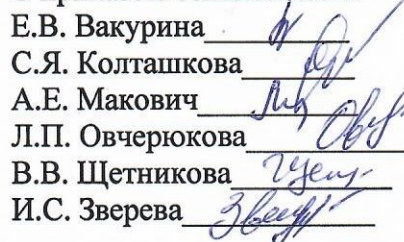 Е.В. Вакурина
С.Я. Колташкова
А.Е. Макович
Л.П. Овчерюкова
В.В. Щетникова
И.С. Зверева